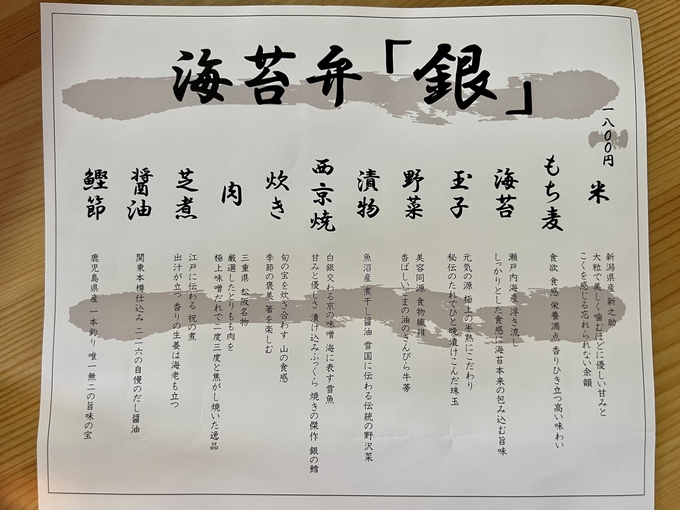 海苔弁「銀」
一八〇〇円
米
新潟県産 新之助
大粒で美しく噛むほどに優しい甘みと
こくを感じる忘れられない余韻
もち麦
食欲 食感 栄養満点 香りひき立つ高い味わい
海苔
瀬戸内海産 浮き流し
しっかりとした食感に海苔本来の包み込む旨味
玉子
元気の源 極上の半熟にこだわり
秘伝のたれでひと晩漬けこんだ珠玉
野菜
美容同源 食物繊維
香ばしいごまの油のきんぴら牛蒡
漬物
魚沼産 煮干し醤油 雪国に伝わる伝統の野沢菜
西京焼
白銀交わる京の味噌 海に表す雪魚
甘みと優しさ 漬け込みふっくら 焼きの傑作 銀の鱈
炊き
旬の宝を炊き合わす 山の食感
季節の褒美 箸を楽しむ
肉
三重県 松阪名物
厳選したとりもも肉を
極上味噌だれで二度三度と焦がし焼いた逸品
芝煮
江戸に伝わる 祝の煮
出汁が立つ 香りの生姜は海老も立つ
醤油
関東本樽仕込み 二二六の自慢のだし醤油
鰹節
鹿児島県産 一本釣り 唯一無二の旨味の宝